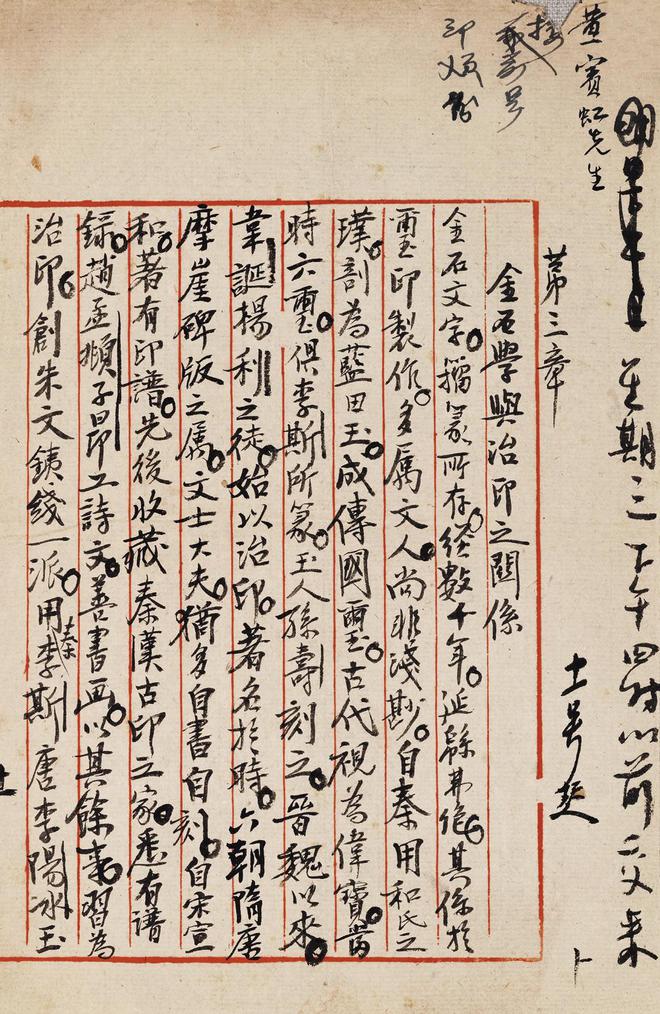 星期三下午四时以前交来
黄宾虹先生
十一号起
第三章
金石學與治印之關係
金石文字。籀篆所存。經數千年。延緜弗絶。其係於
璽印製作。多属文人。尚非淺尠。自秦用和氏之
璞。剖為藍田玉。成傳國璽。古代視為偉寶。當
時六璽。俱李斯所篆。玉人孫壽刻之。晉魏以來。
韋誕楊利之徒。始以治印。著名於時。六朝隋唐
摩崖碑版之属。文士大夫。猶多自書自刻。自宋宣
和。著有印譜。先後收藏秦漢古印之家。悉有譜
錄。趙孟頫子昂工詩文。善書画。以其餘事。習為
治印。創朱文鐵綫一派。用秦李斯唐李陽冰玉